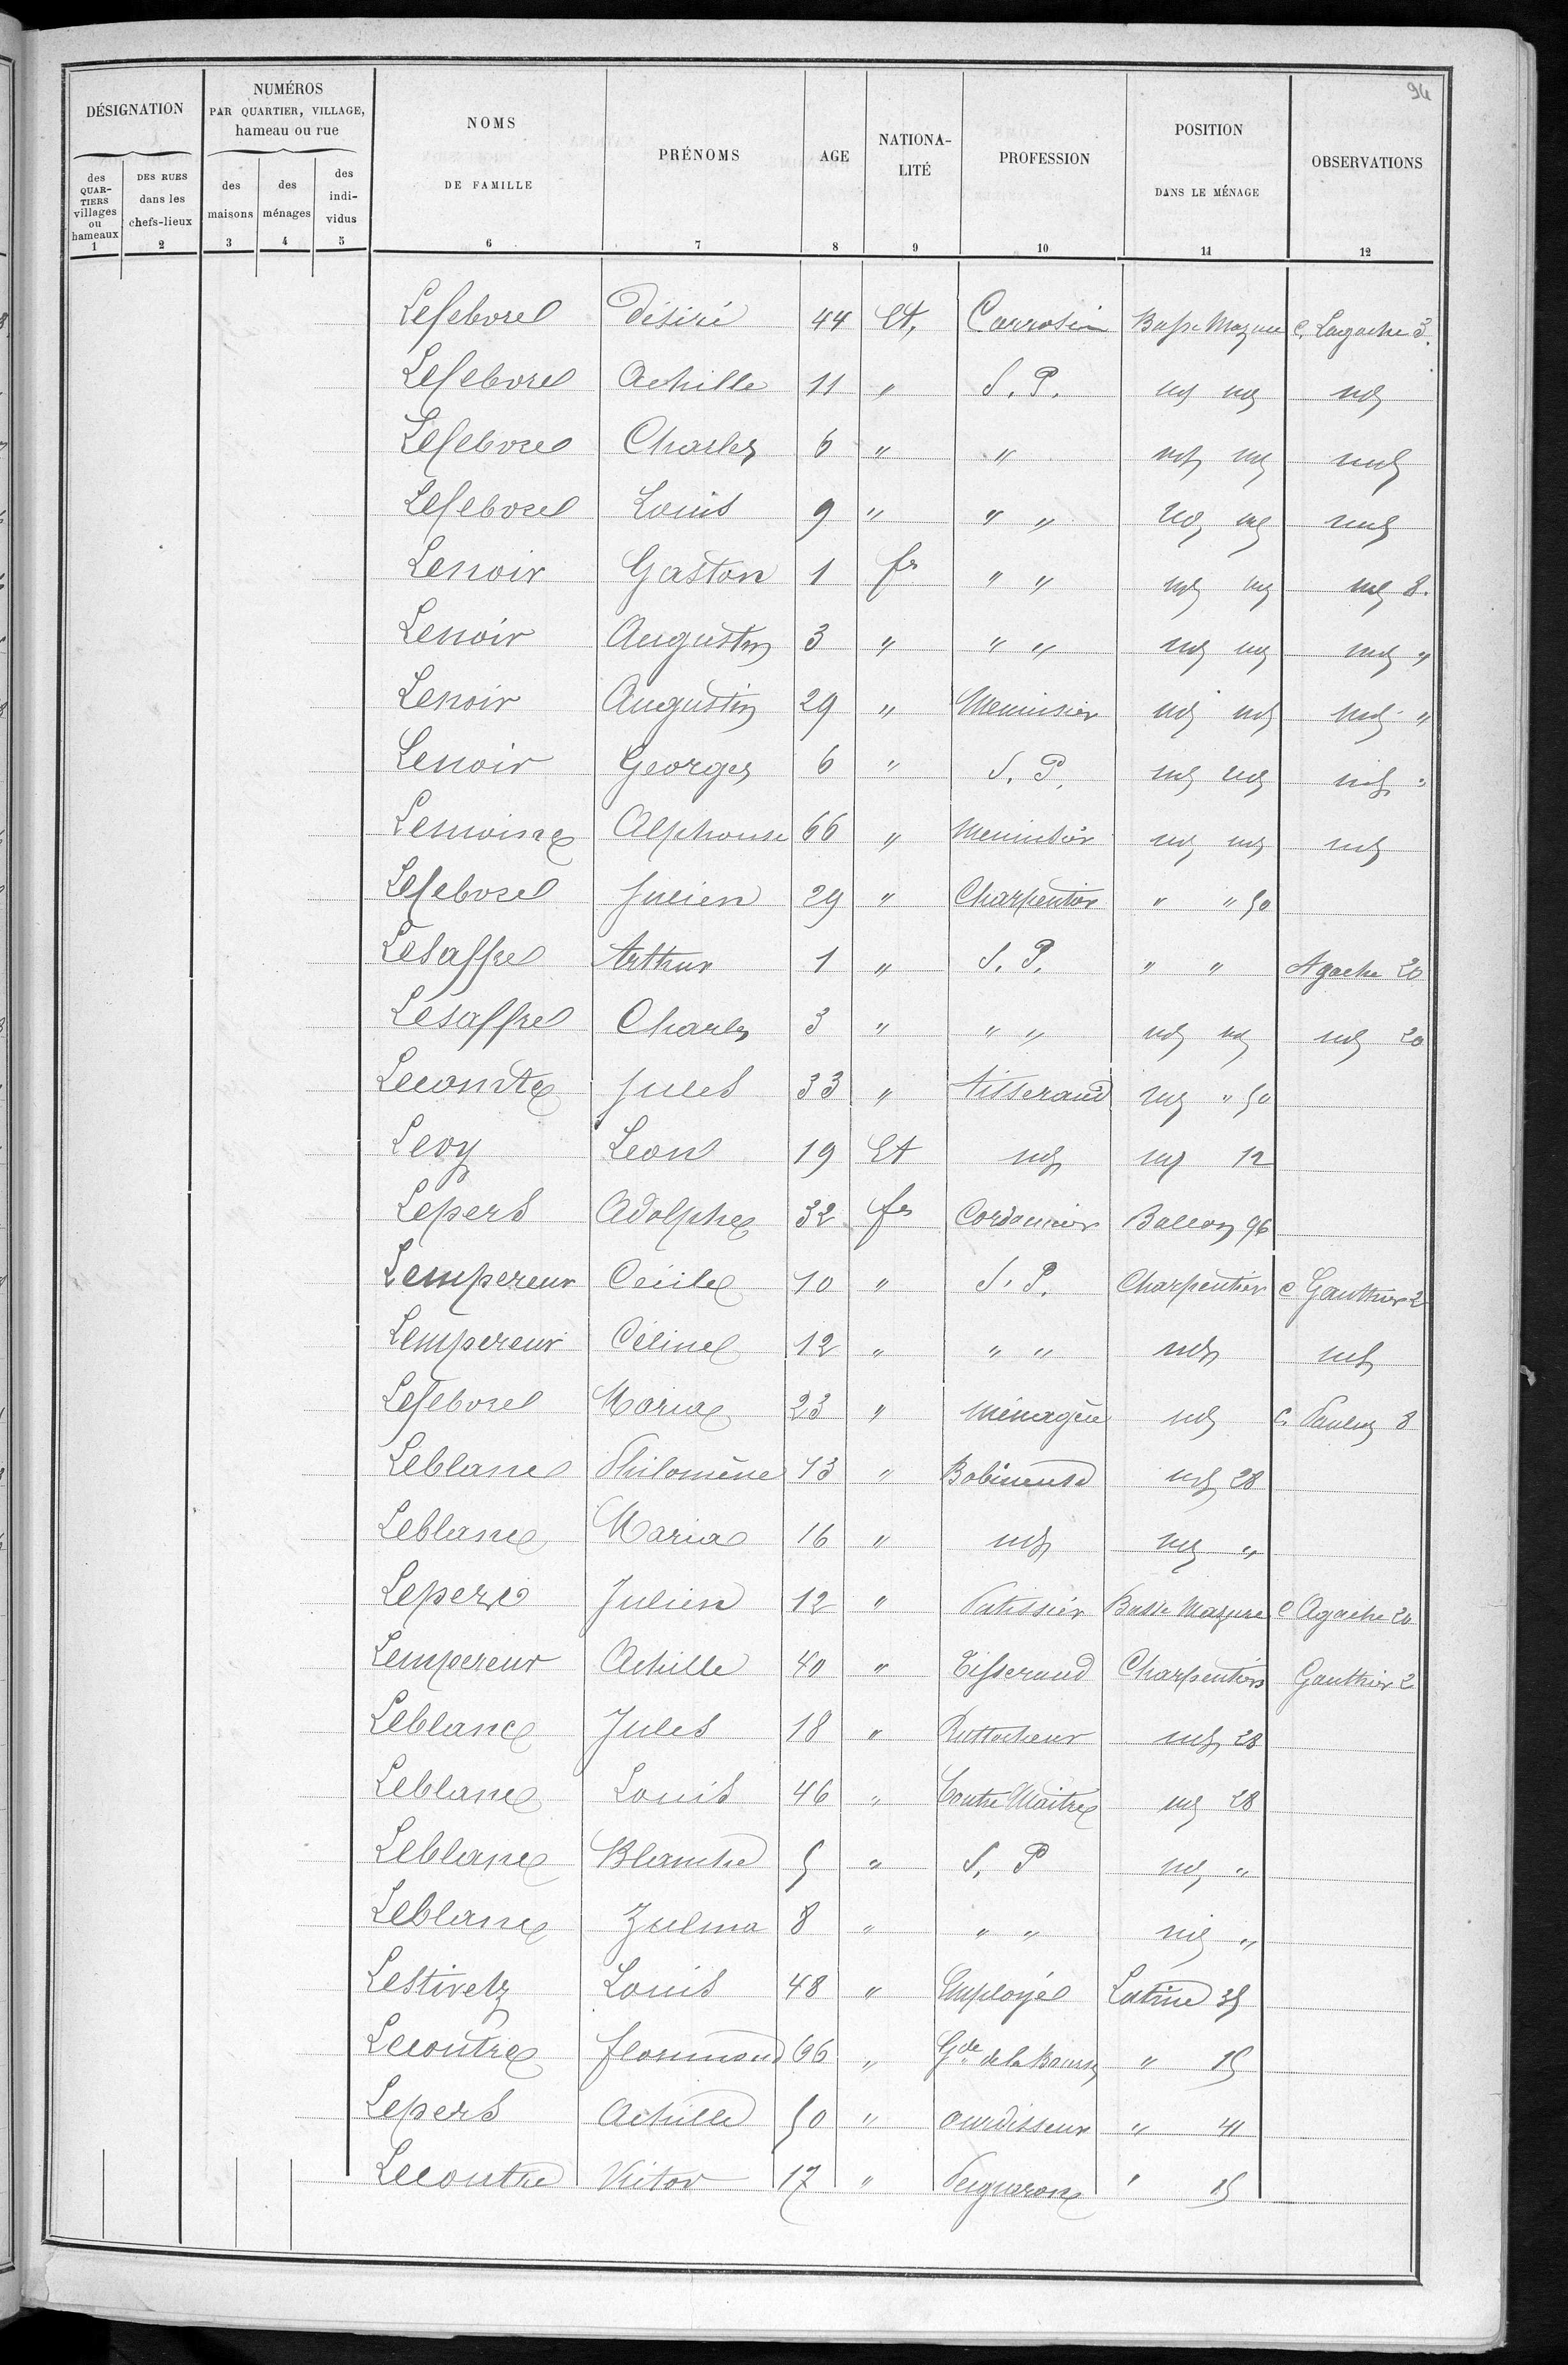 94
DÉSIGNATION
des QUAR-TIERS villages ou hameaux
1
DES RUES dans les chefs-lieux
2
NUMÉROS
PAR QUARTIER, VILLAGE,
hameau ou rue
des maisons
3
des ménages
4
des indi-vidus
5
NOMS
DE FAMILLE
6
PRÉNOMS
7
AGE
8
NATIONA-LITÉ
9
PROFESSION
10
POSITION
DANS LE MÉNAGE
11
OBSERVATIONS
12
Lefebvre Désiré 44 Et. Basse Mazure c. Lagache 3.
Lefebvre Achille 11 " S. P. id id id
Lefebvre Charles 6 " " id id id
Lefebvre Louis 9 " " " id id id
Lenoir Gaston 1 fr " " id id id 8.
Lenoir Augustin 3 " " " id id id "
Lenoir Augustin 29 " Menuisier id id id "
Lenoir Georges 6 " S. P. id id id "
Lemoine Alphonse 66 " Menuisier id id id
Lefebvre Julien 29 " Charpentier " " 50
Lesaffre Arthur 1 " S. P. " " Agache 20
Lesaffre Charles 3 " " " id id id 20
Lecomte Jules 33 " tisserand id " 50
Levy Leon 19 Et id id 12
Lepers Adolphe 32 fr Cordonnier Ballon 96
Lempereur Cécile 10 " S. P. Charpentier c Gauthier 2
Lempereur Céline 12 " " " id id
Lefebvre Maria 23 " Ménagère id c. 8
Leblanc Philomène 13 " Bobineuse id 28
Leblanc Maria 16 " id id "
Lepers Julien 12 " Patissier Basse Mazure c Agache 20
Lempereur Achille 40 " Tisserand Charpentier Gauthier 2
Leblanc Jules 18 " Rattacheur id 28
Leblanc Louis 46 " Contre Maitre id 28
Leblanc Blanche 5 " S. P id "
Leblanc Zulma 8 " " " id "
Lestivetz Louis 48 " Employé Latine 35
Lecoutre florimond 66 " Gde de la Bourse " 15
Lepers Achille 50 " ourdisseur " 41
Lecoutre Victor 17 " Peigneron " 15